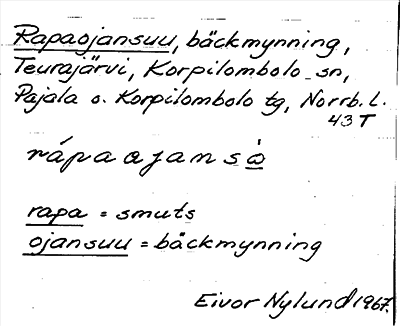 Rapaojansuu, bäckmynning,
Teurajärvi, Korpilombolo sn,
Pajala o. Korpilombolo tg, Norrb. L.
43 T
rápaajansò̲
rapa = smuts
ojansuu = bäckmynning
Eivor Nylund 1967.